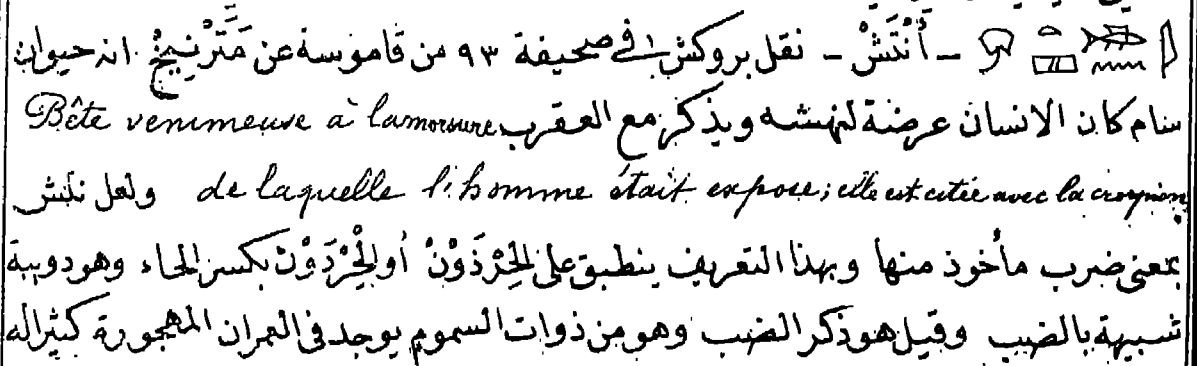 ـ أَنْتَشْ ـ نقل بروكش في صحيفة ٩٣ من قاموسة عن مَتَّرْنِيخْ انه حيوان
سام كان الانسان عرضة لنهشه ويذكر مع العقرب Bête venimeuse à la morsure
de laquelle l'homme était exposé; elle est citée avec la scorpion ولعل نلش
بمعنى ضرب مأخوذ منها وبهذا التعريف ينطبق على الحِرْذَوْنْ أو الحِرْدَوْنْ بكسر الحاء وهو دويبة
شبيهة بالضب وقيل هو ذكر الضب وهو من ذوات السموم يوجد في العمران المهجورة كثيرا له